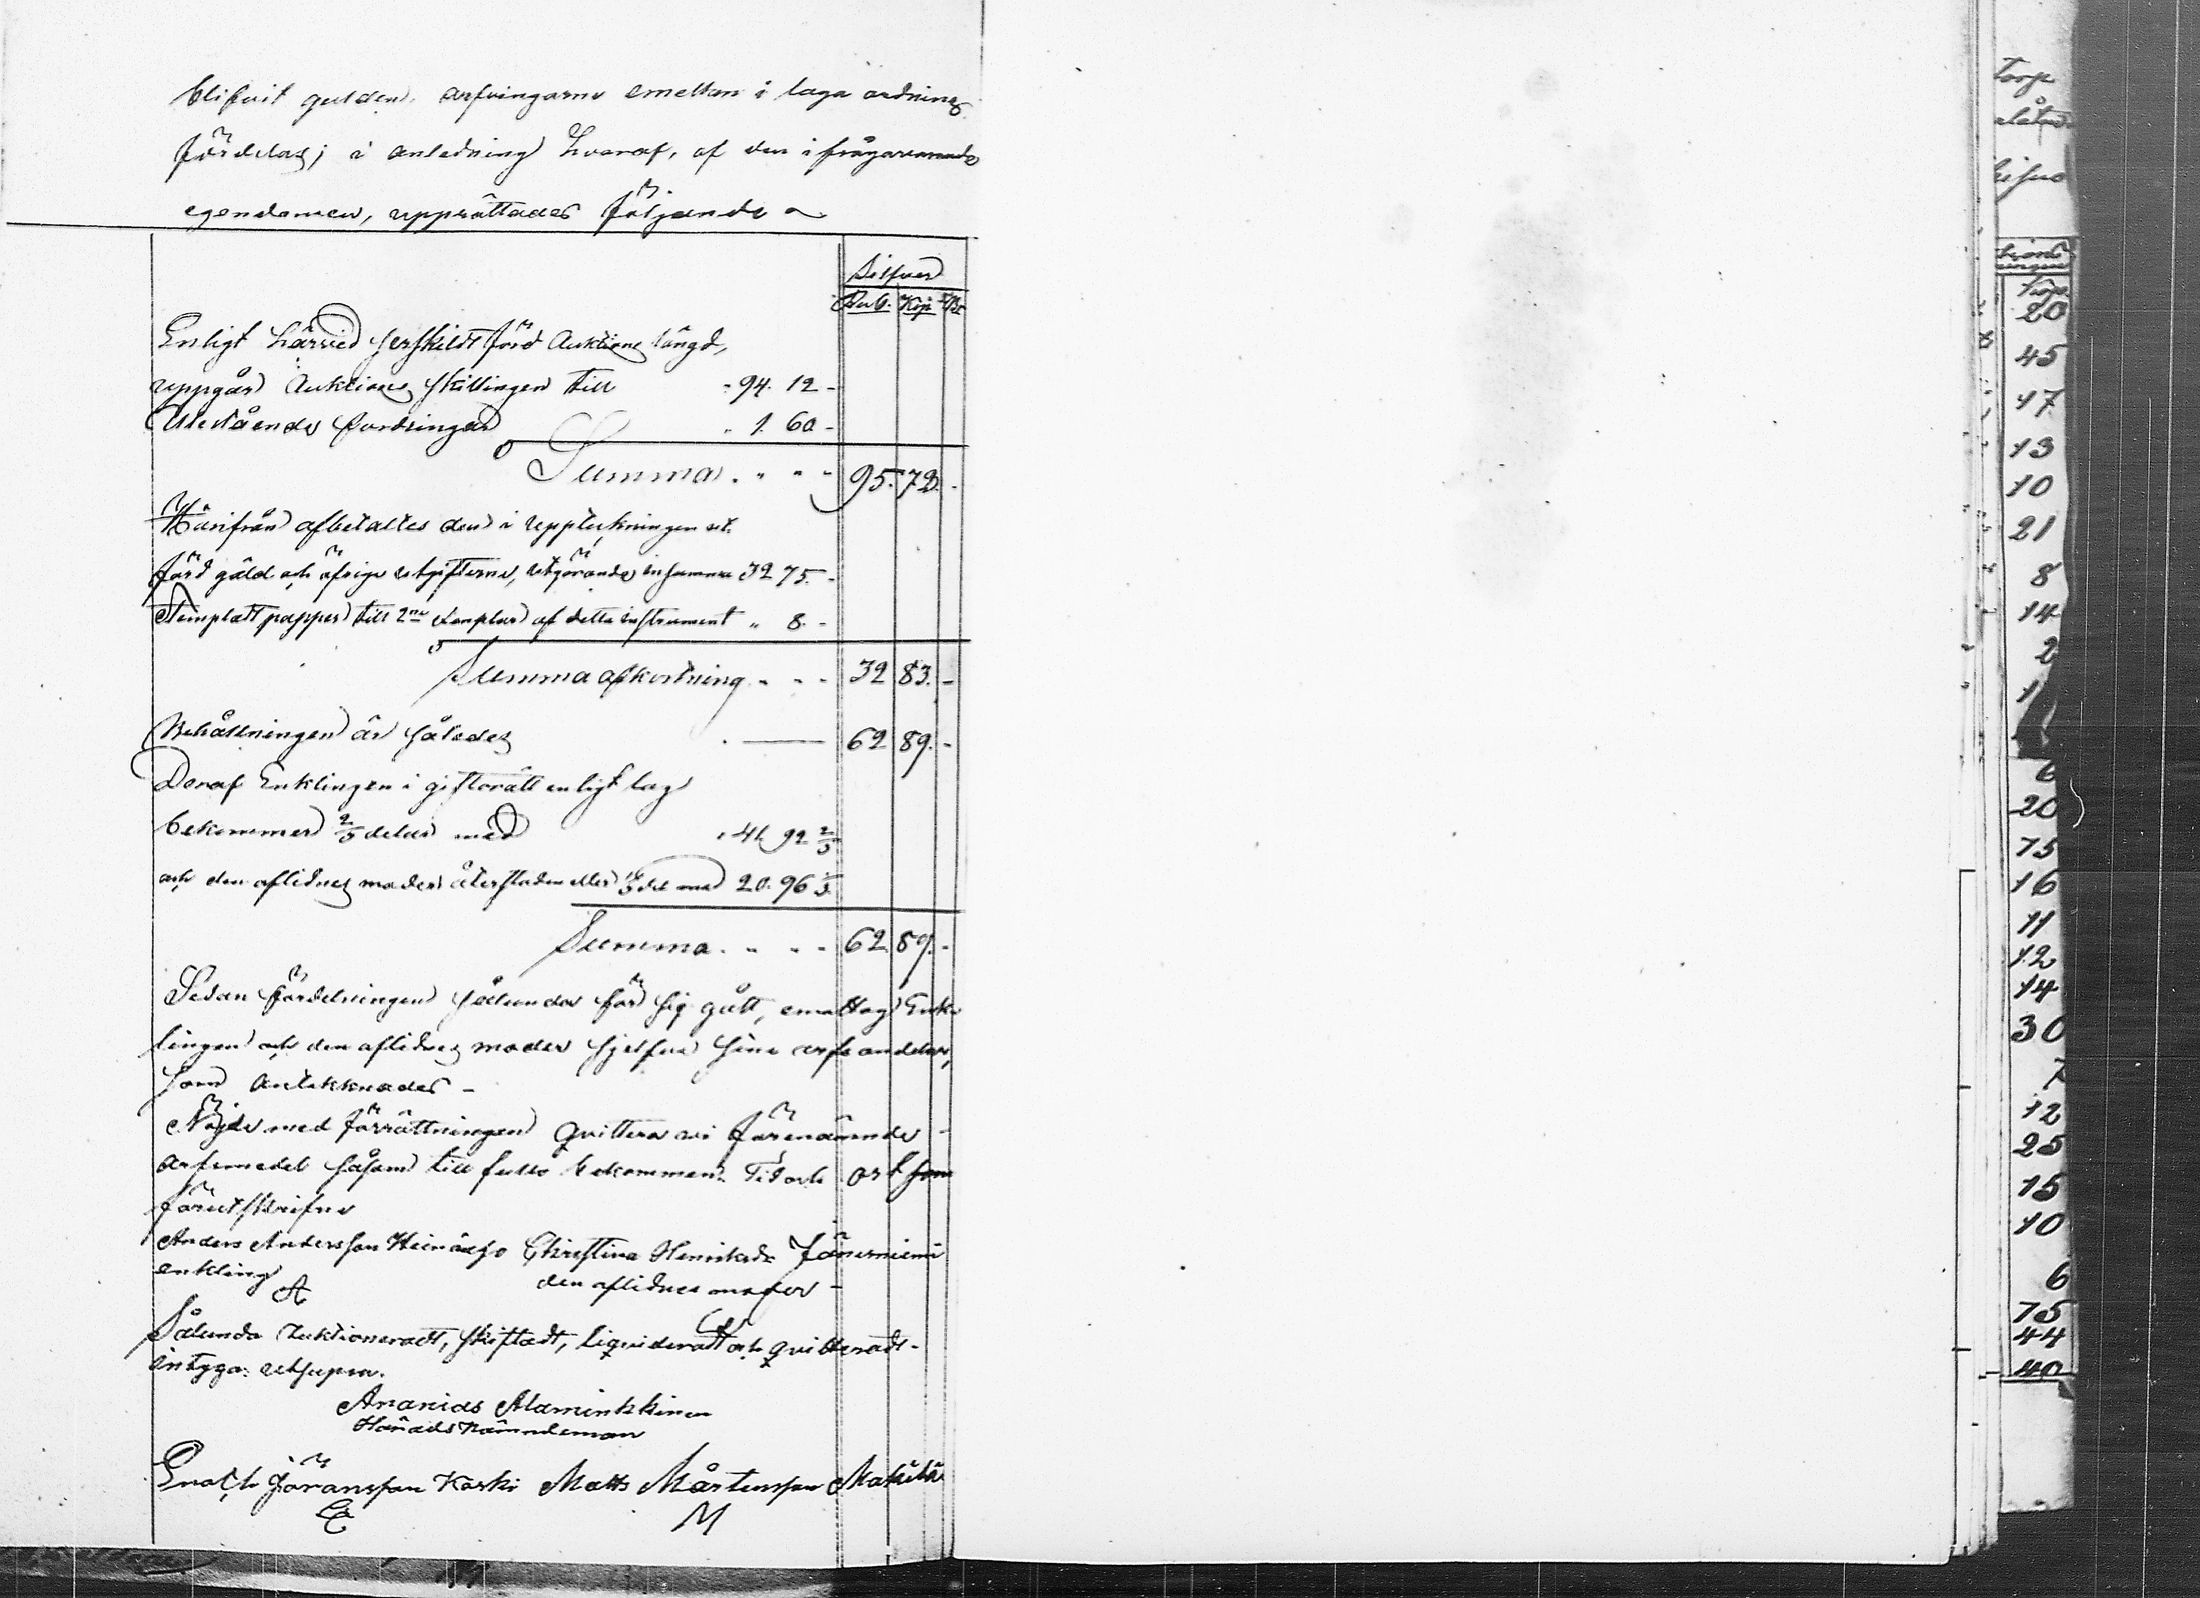 blifvit gulden, arfvingarne emellan i laga ordning
fördelas; i anledning hvaraf, af den i frågavarande
egendomen, upprättades följande
Silfver
Rub. Kop.
Enligt härvid serskildt förd Auktions längd,
uppgår Auktions skillingen till 94. 12 -
Utestående fordringar 1. 60 -
Summa 95. 72. -
Härifrån afbetaltes den i uppteckningen ut-
förd gäld och öfrige utgifterne, utgörande insumma 32 75. -
Stemplatt papper till 2ne exemplar af detta instrument " 8. -
Summa afkortning 32 83. -
Behållningen är således 62 89. -
Deraf Enklingen i giftorätt enligt lag
bekommer 2/3 delar med 41. 92 2/3
och den aflidnes moder återstoden eller 1/3 del med 20. 96 1/3
Summa 62 89. -
Sedan fördelningen sålunda för sig gått, emottog Enk-
lingen och den aflidnes moder sjelfva sina arfs andelar,
som antecknades -
Nöjde med förrättningen qvittera vi förenämnde
arfvemedel såsom till fullo bekommen. Tid och ort som
förutskrifne
Anders Andersson Heinäejo Christina Henriksdr Jänesniemi
enkling den aflidnes moder -
A
Sålunda Auktioneradt, skiftadt, liquideradt och qvitteradt -
intyga: utsupra.
Ananias Alaminkkinen
Härads Nämndeman
Enoch Göransson Koski Matts Mårtensson Makälä
E M
torp
20
45
17
13
10
21
8
14
2
6
20
75
16
11
12
14
30
7
12
25
15
10
6
75
44
40